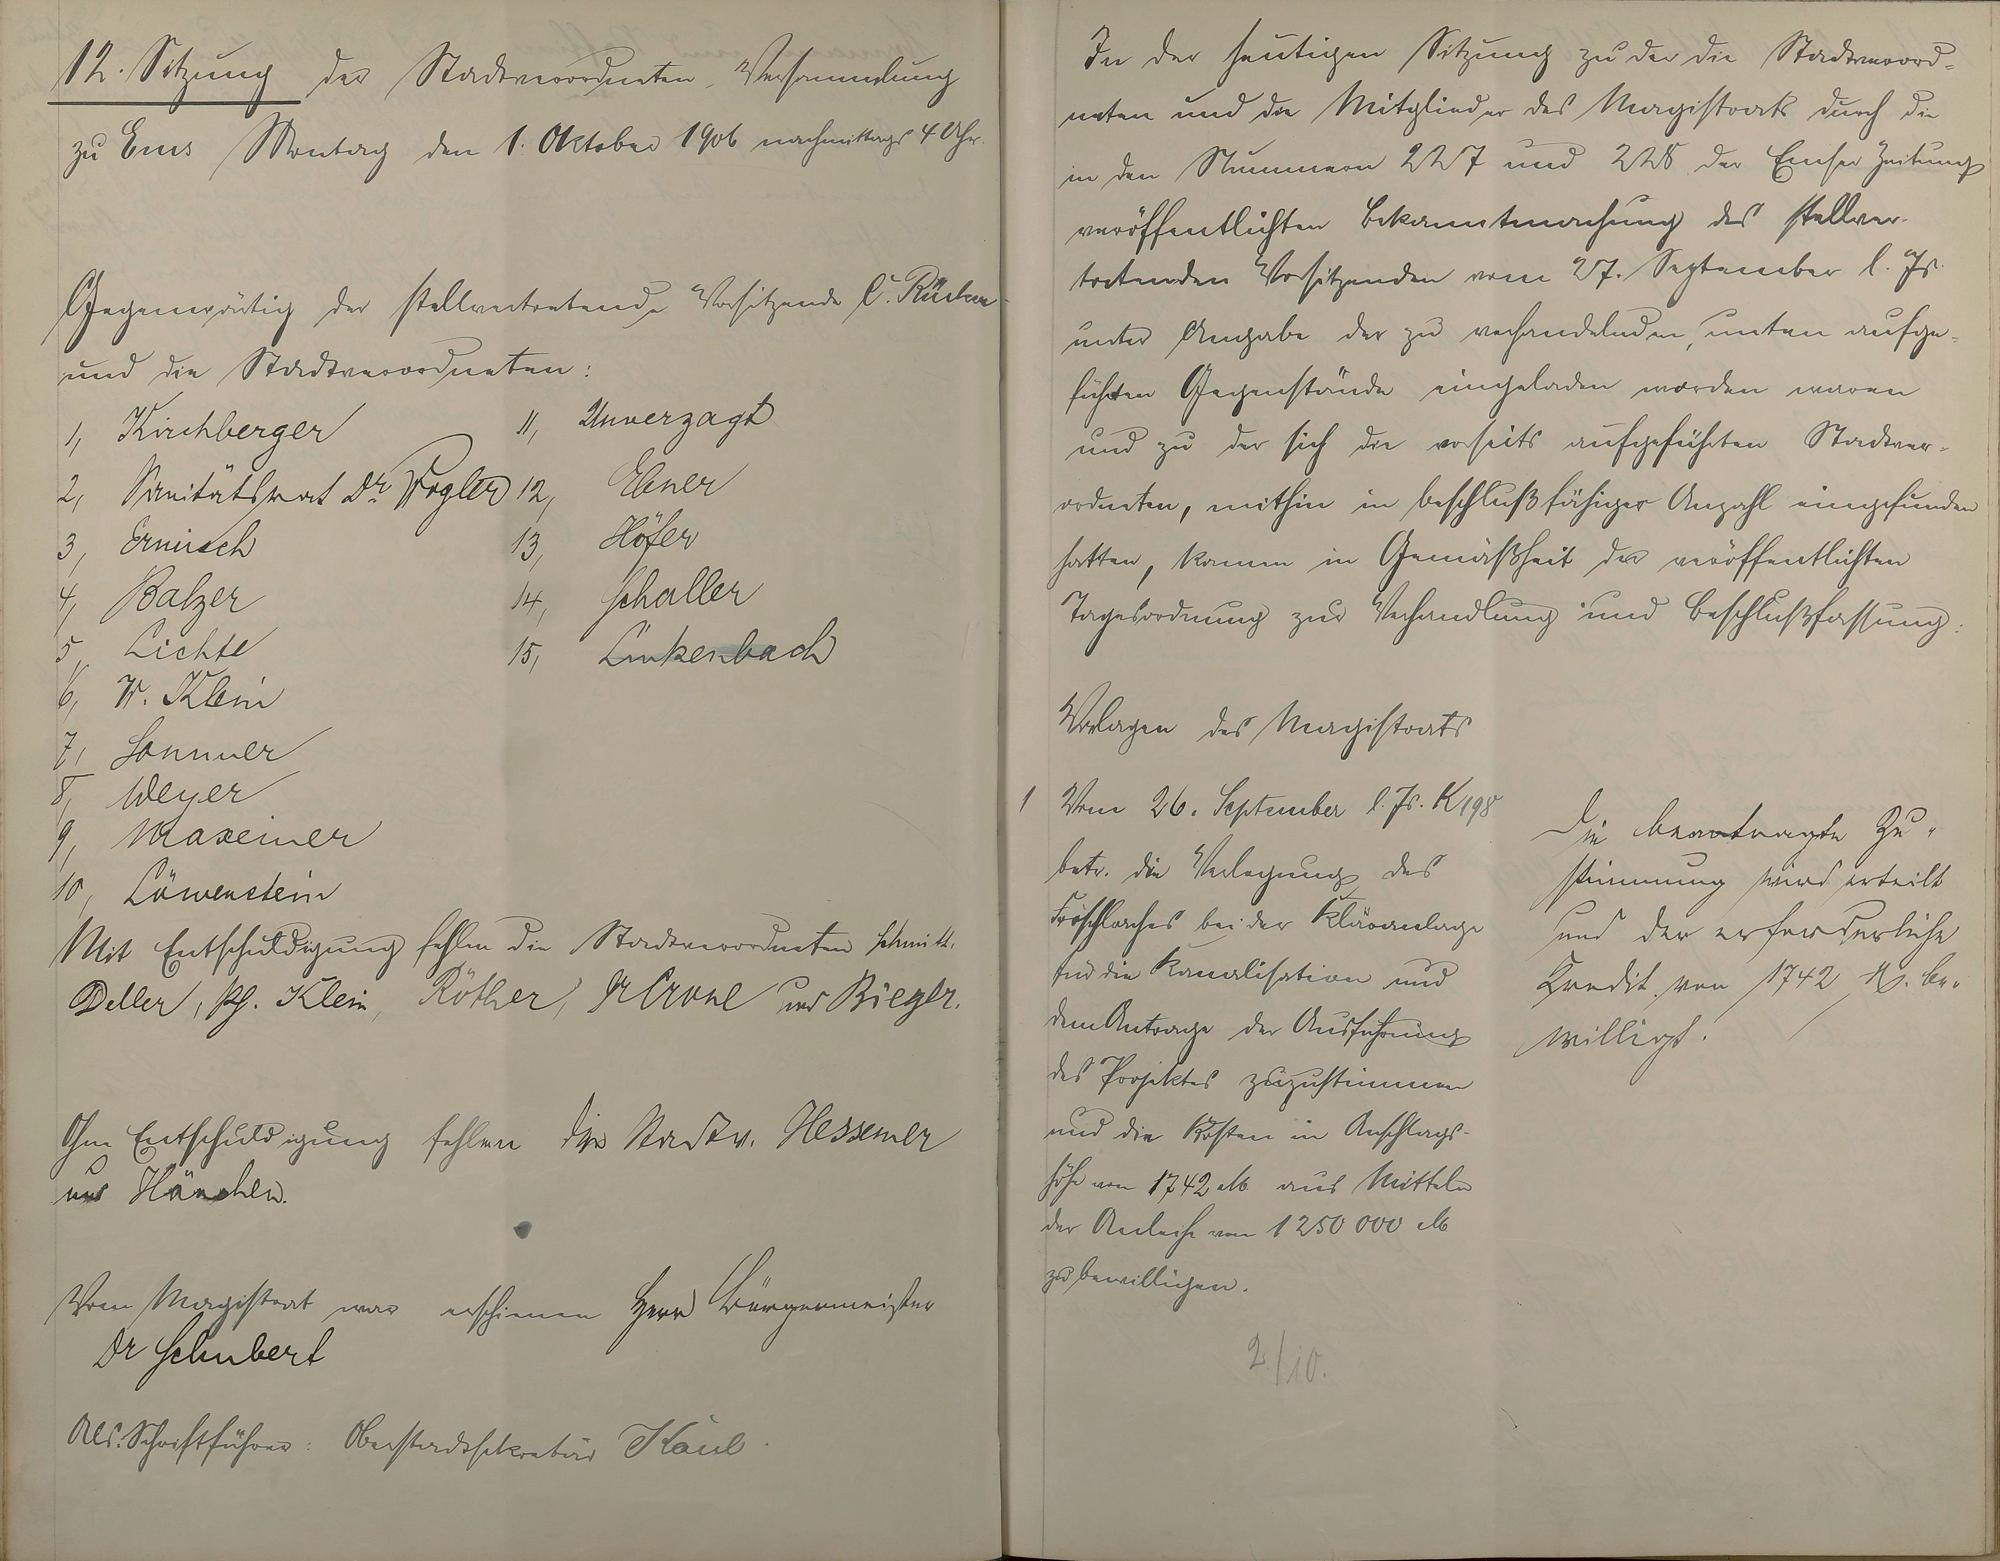 12. Sitzung der Stadtverordneten-Versammlung
zu Ems Montag den 1. Oktober 1906 nachmittags 4 Uhr.
Gegenwärtig der stellvertretende Vorsitzende C. Rücker
und die Stadtverordneten:
1, Kirchberger
2, Sanitätsrat Dr. Vogler
3, Ermisch
4, Balzer
5, Lichte
6, W. Klein
7, Sommer
8, Weyer
9, Maxeiner
10, Löwenstein
11, Unverzagt
12, Ebner
13, Höfer
14, Schaller
15, Linkenbach
Mit Entschuldigung fehlen die Stadtverordneten Schmitt,
Deller, Ph. Klein, Röther, Krone und Biegler.
Ohne Entschuldigung fehlen die Stadtv. Hessemer
und Hänchen.
Vom Magistrat war erschienen Herr Bürgermeister
Dr Schubert
Als Schriftführer: Oberstadtsekretär Kaul.
In der heutigen Sitzung zu der die Stadtverord-
neten und die Mitglieder des Magistrats durch die
in den Nummern 227 und 228 der Emser Zeitung
veröffentlichten Bekanntmachung des stellver-
tretenden Vorsitzenden vom 27. September l. Js.
unter Angabe der zu verhandelnden, unten aufge-
führten Gegenstände eingeladen worden waren
und zu der sich die vorseits aufgeführten Stadtver-
ordneten, mithin in beschlußfähiger Anzahl eingefunden
hatten, kamen in Gemäßheit der veröffentlichten
Tagesordnung zur Verhandlung und Beschlußfassung:
Vorlagen des Magistrats
1 Vom 26. September l. Js. K 198
betr. die Verlegung des
Fröschbaches bei der Kläranlage
für die Kanalisation und
dem Antrage der Ausführung
des Projektes zuzustimmen
und die Kosten in Anschlags-
höhe von 1742 M aus Mitteln
der Anleihe von 1250 000 M
zu bewilligen.
Die beantragte Zu-
stimmung wird erteilt
und der erforderliche
Kredit von 1742 M. be-
willigt.
2/10.